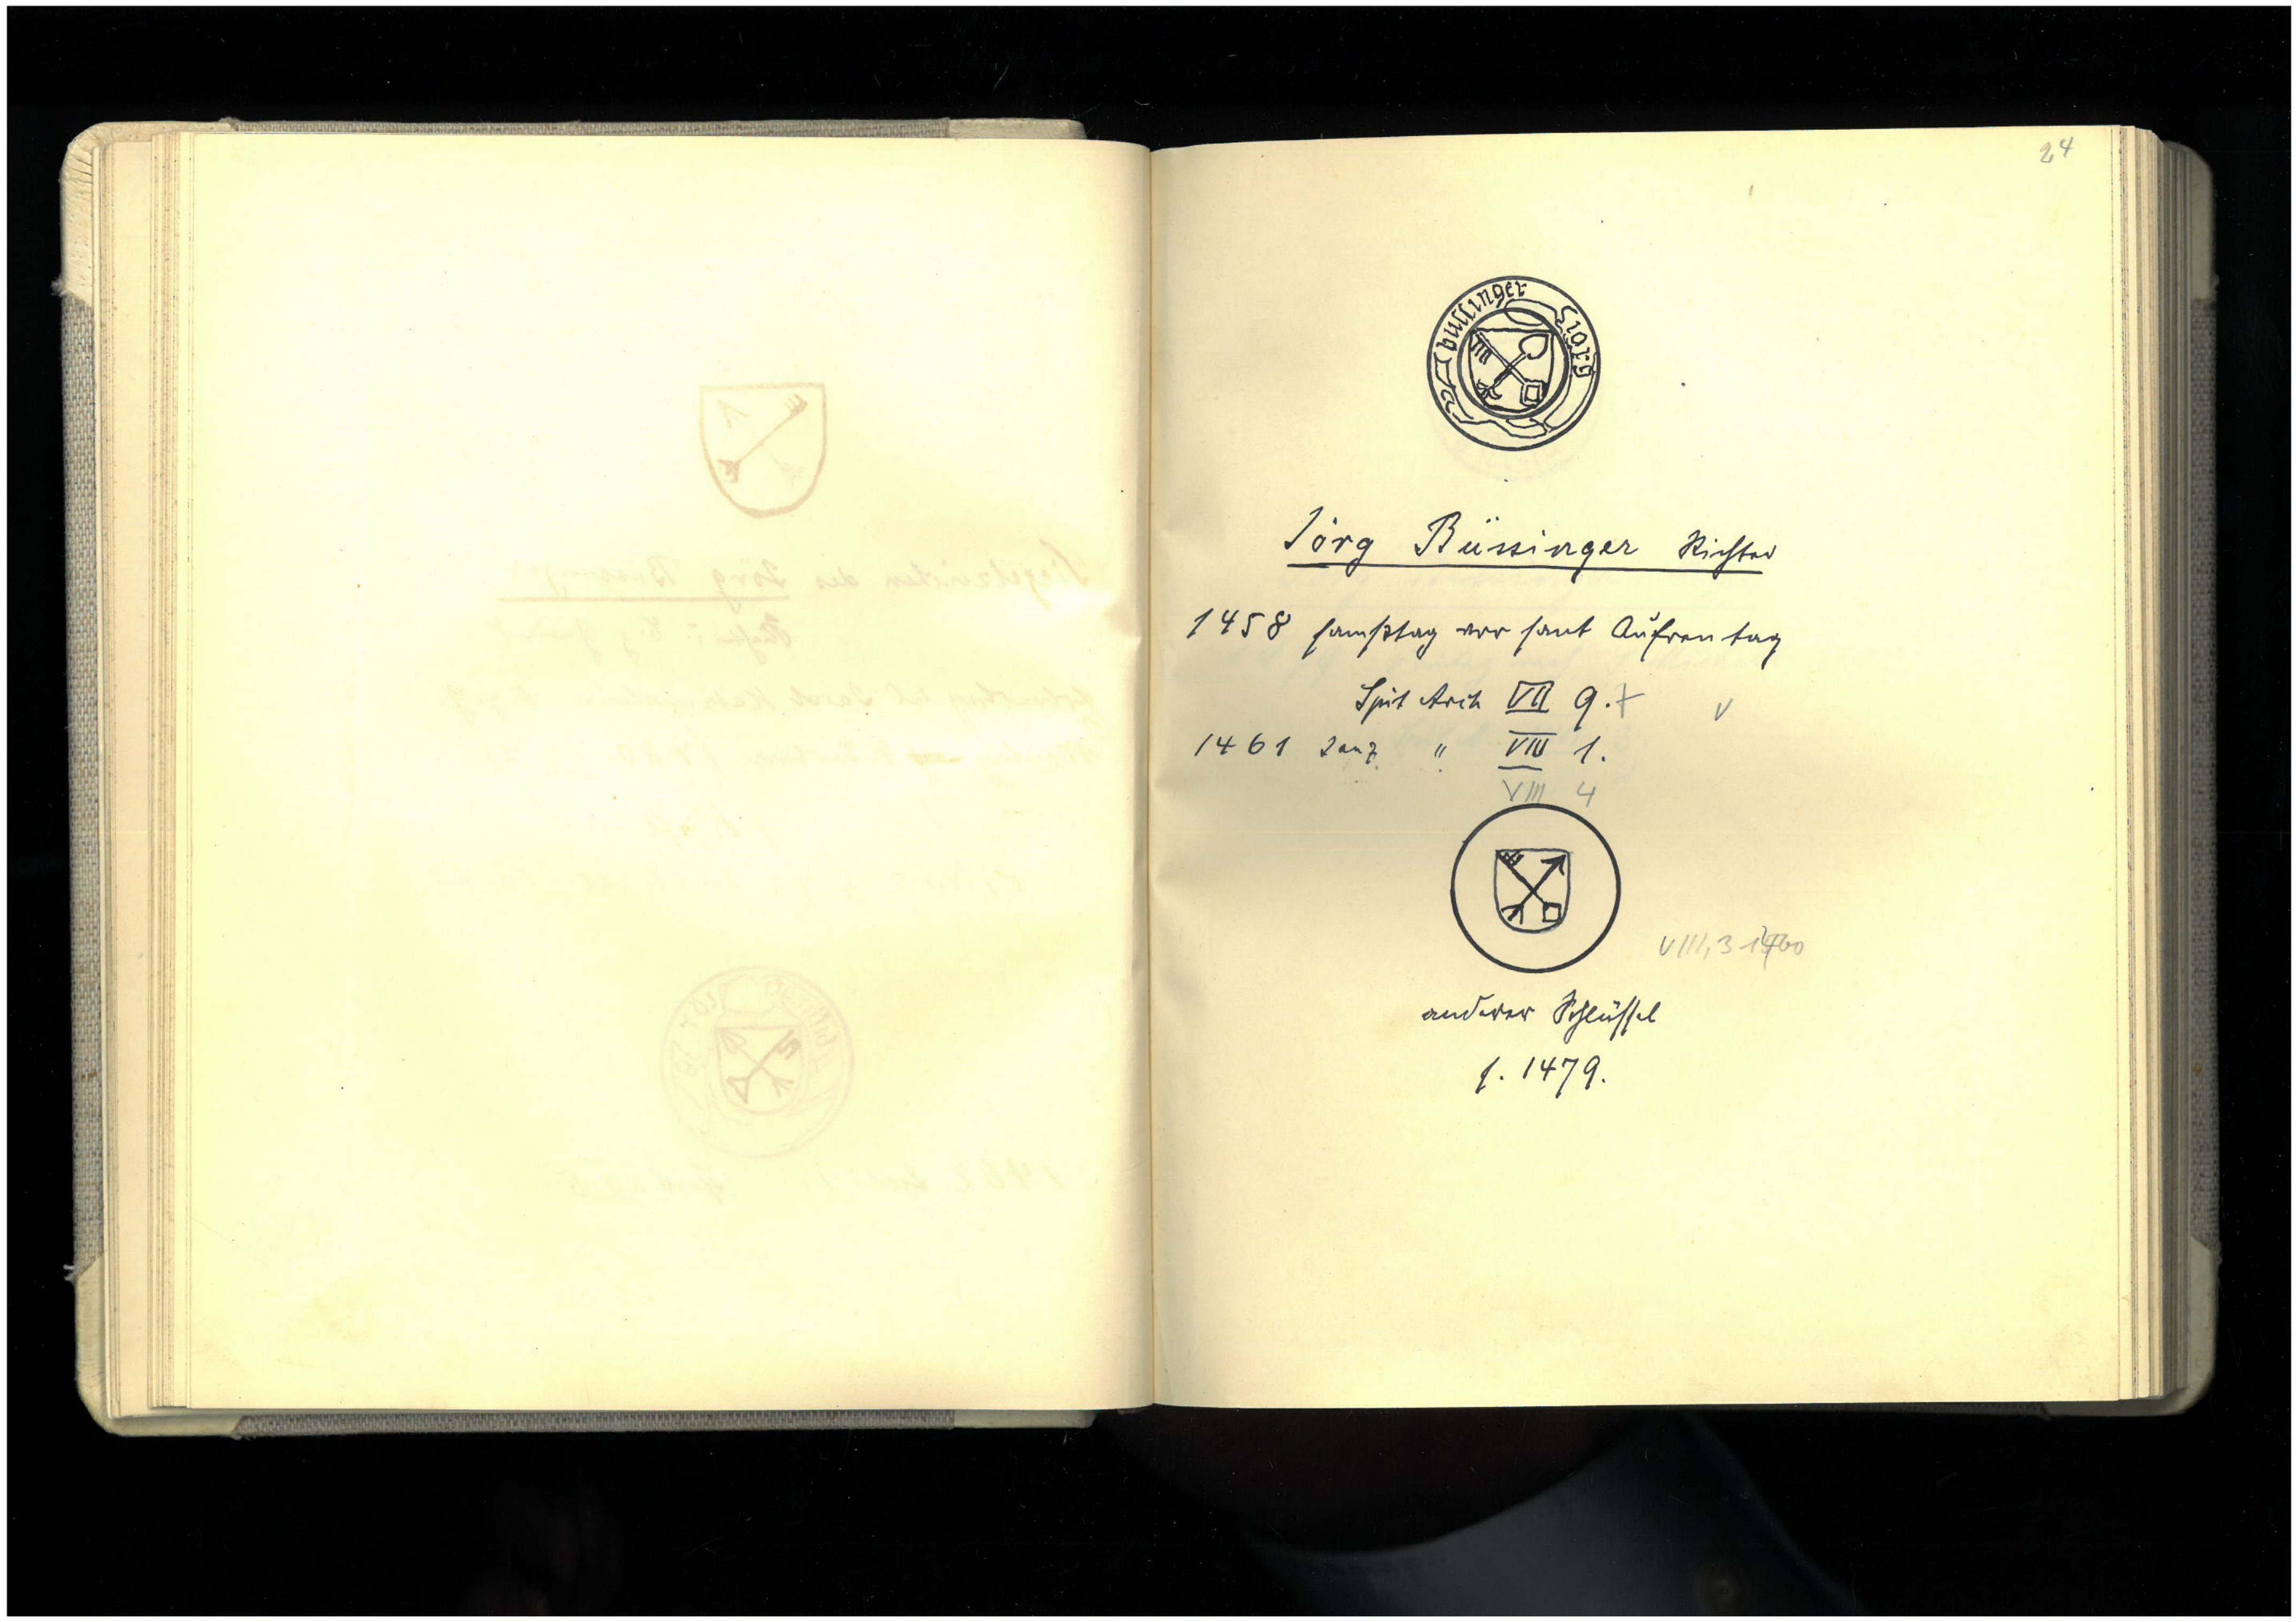 24
bussinger Jorg
Jörg Büssinger Richter
1458 samßtag vor sant Aufren tag
Spit Arch VII 9.
1461 " VIII 1.
VIII 4
VIII, 3 1460
anderer Schlüssel
s. 1479.